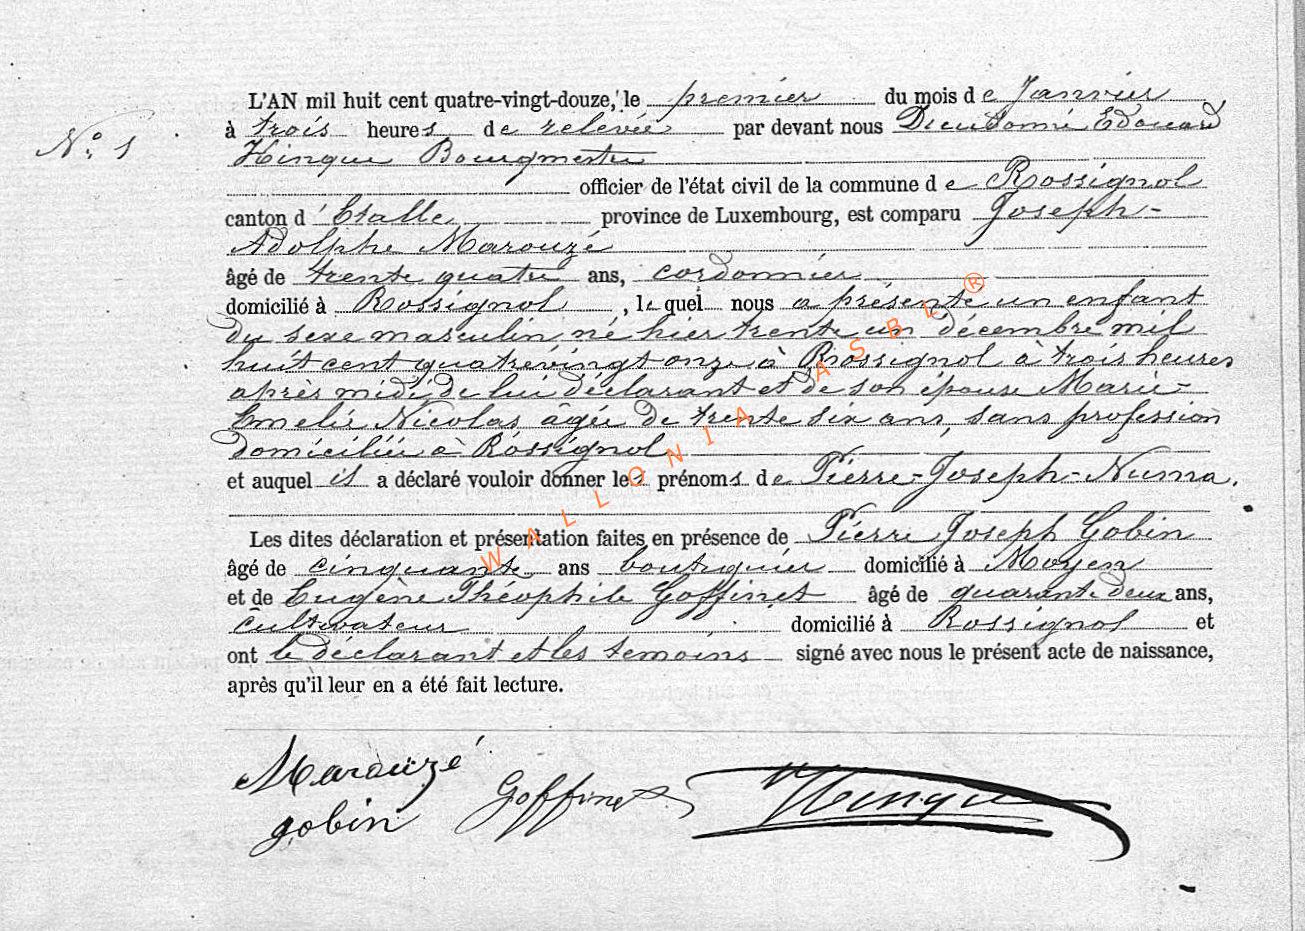 L'AN mil huit cent quatre-vingt-douze, le premier du mois de Janvier
N.° 1
à trois heures de relevée par devant nous Dieudonné Edouard
Hinque Bourgmestre
officier de l'état civil de la commune de Rossignol
canton d'Etalle province de Luxembourg, est comparu Joseph-
Adolphe Marouzé
âgé de trente quatre ans, cordonnier
domicilié à Rossignol, lequel nous a présenté un enfant
du sexe masculin né hier trente un décembre mil
huit cent quatrevingt onze à Rossignol à trois heures
après midi de lui déclarant et de son épouse Marie-
Emelie Nicolas âgée de trente six ans, sans profession
domiciliée à Rossignol
et auquel il a déclaré vouloir donner les prénoms de Pierre-Joseph-Numa.
Les dites déclaration et présentation faites en présence de Pierre Joseph Gobin
âgé de cinquante ans boutiquier domicilié à Moyen
et de Eugène Théophile Goffinet âgé de quarante deux ans,
cultivateur domicilié à Rossignol et
ont le déclarant et les témoins signé avec nous le présent acte de naissance,
après qu'il leur en a été fait lecture.
Marouzé
gobin Goffinet Hinque
WALLONIA ASBL ®